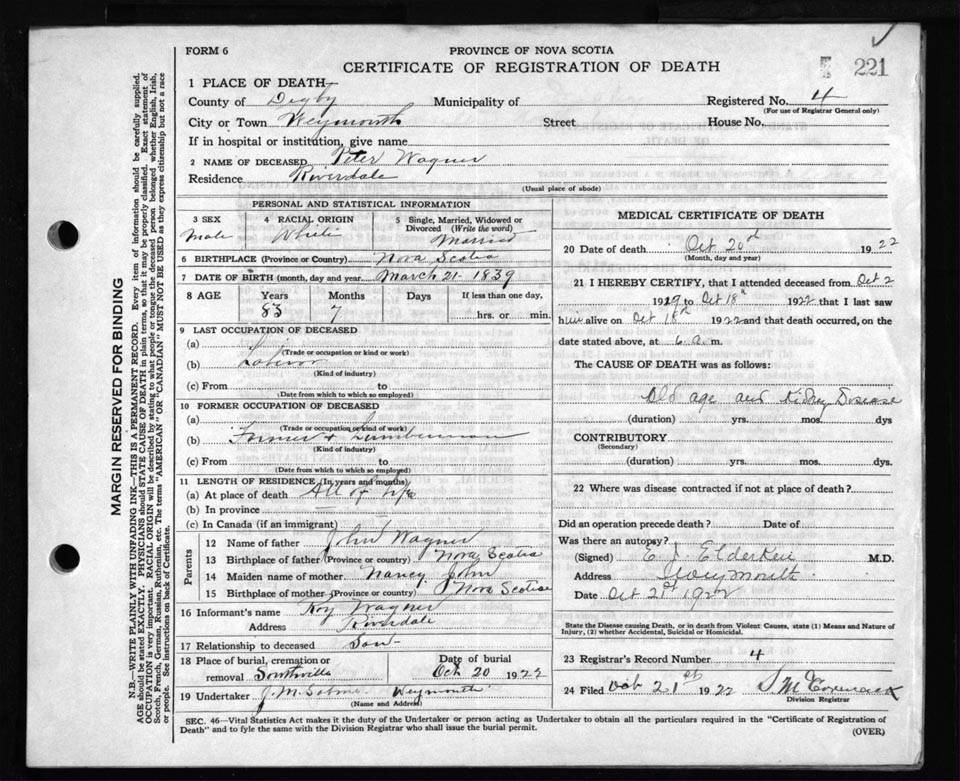 FORM 6
PROVINCE OF NOVA SCOTIA
CERTIFICATE OF REGISTRATION OF DEATH
221
1 PLACE OF DEATH—
County of Digby Municipality of Registered No. 4
(For use of Registrar General only)
City or Town Weymouth Street House No.
If in hospital or institution, give name
2 NAME OF DECEASED Peter Wagner
Residence Riverdale
(Usual place of abode)
PERSONAL AND STATISTICAL INFORMATION
3 SEX Male
4 RACIAL ORIGIN White
5 Single, Married, Widowed or Divorced (Write the word) Married
6 BIRTHPLACE (Province or Country) Nova Scotia
7 DATE OF BIRTH (month, day and year) March 21- 1839
8 AGE Years Months Days If less than one day,
83 7 hrs. or min.
9 LAST OCCUPATION OF DECEASED
(a)
(Trade or occupation or kind or work)
(b) Laborer
(Kind of industry)
(c) From to
(Date from which to which so employed)
10 FORMER OCCUPATION OF DECEASED
(a)
(Trade or occupation or kind of work)
(b) Farmer & Lumberman
(Kind of industry)
(c) From to
(Date from which to which so employed)
11 LENGTH OF RESIDENCE (In years and months)
(a) At place of death All of life
(b) In province
(c) In Canada (if an immigrant)
Parents
12 Name of father John Wagner
13 Birthplace of father (Province or country) Nova Scotia
14 Maiden name of mother Nancy John
15 Birthplace of mother (Province or country) Nova Scotia
16 Informant's name Roy Wagner
Address Riverdale
17 Relationship to deceased Son
18 Place of burial, cremation or removal Southville
Date of burial Oct 20 1922
19 Undertaker J. M. Weymouth
(Name and Address)
MEDICAL CERTIFICATE OF DEATH
20 Date of death Oct 20 1922
(Month, day and year)
21 I HEREBY CERTIFY, that I attended deceased from Oct 2
1919 to Oct 18th 1922 that I last saw
him alive on Oct 18th 1922 and that death occurred, on the
date stated above, at 6 a. m.
The CAUSE OF DEATH was as follows:
Old age and Kidney Disease
(duration) yrs. mos. dys
CONTRIBUTORY
(Secondary)
(duration) yrs. mos. dys.
22 Where was disease contracted if not at place of death?
Did an operation precede death? Date of
Was there an autopsy?
(Signed) E. J. Elderkin M.D.
Address Weymouth
Date Oct 21st 1922
State the Disease causing Death, or in death from Violent Causes, state (1) Means and Nature of
Injury, (2) whether Accidental, Suicidal or Homicidal.
23 Registrar's Record Number 4
24 Filed Oct 21st 1922
Division Registrar
SEC. 46—Vital Statistics Act makes it the duty of the Undertaker or person acting as Undertaker to obtain all the particulars required in the "Certificate of Registration of
Death" and to fyle the same with the Division Registrar who shall issue the burial permit.
(OVER)
MARGIN RESERVED FOR BINDING
N.B.—WRITE PLAINLY WITH UNFADING INK—THIS IS A PERMANENT RECORD. Every item of information should be carefully supplied.
AGE should be stated EXACTLY. PHYSICIANS should STATE CAUSE OF DEATH in plain terms, so that it may be properly classified. Exact statement of
OCCUPATION is very important. RACIAL ORIGIN will be described by stating to what people or tongue the deceased person belonged whether English, Irish,
Scotch, French, German, Russian, Ruthenian, etc. The terms "AMERICAN" OR "CANADIAN" MUST NOT BE USED as they express citizenship but not a race
or people. See instructions on back of Certificate.